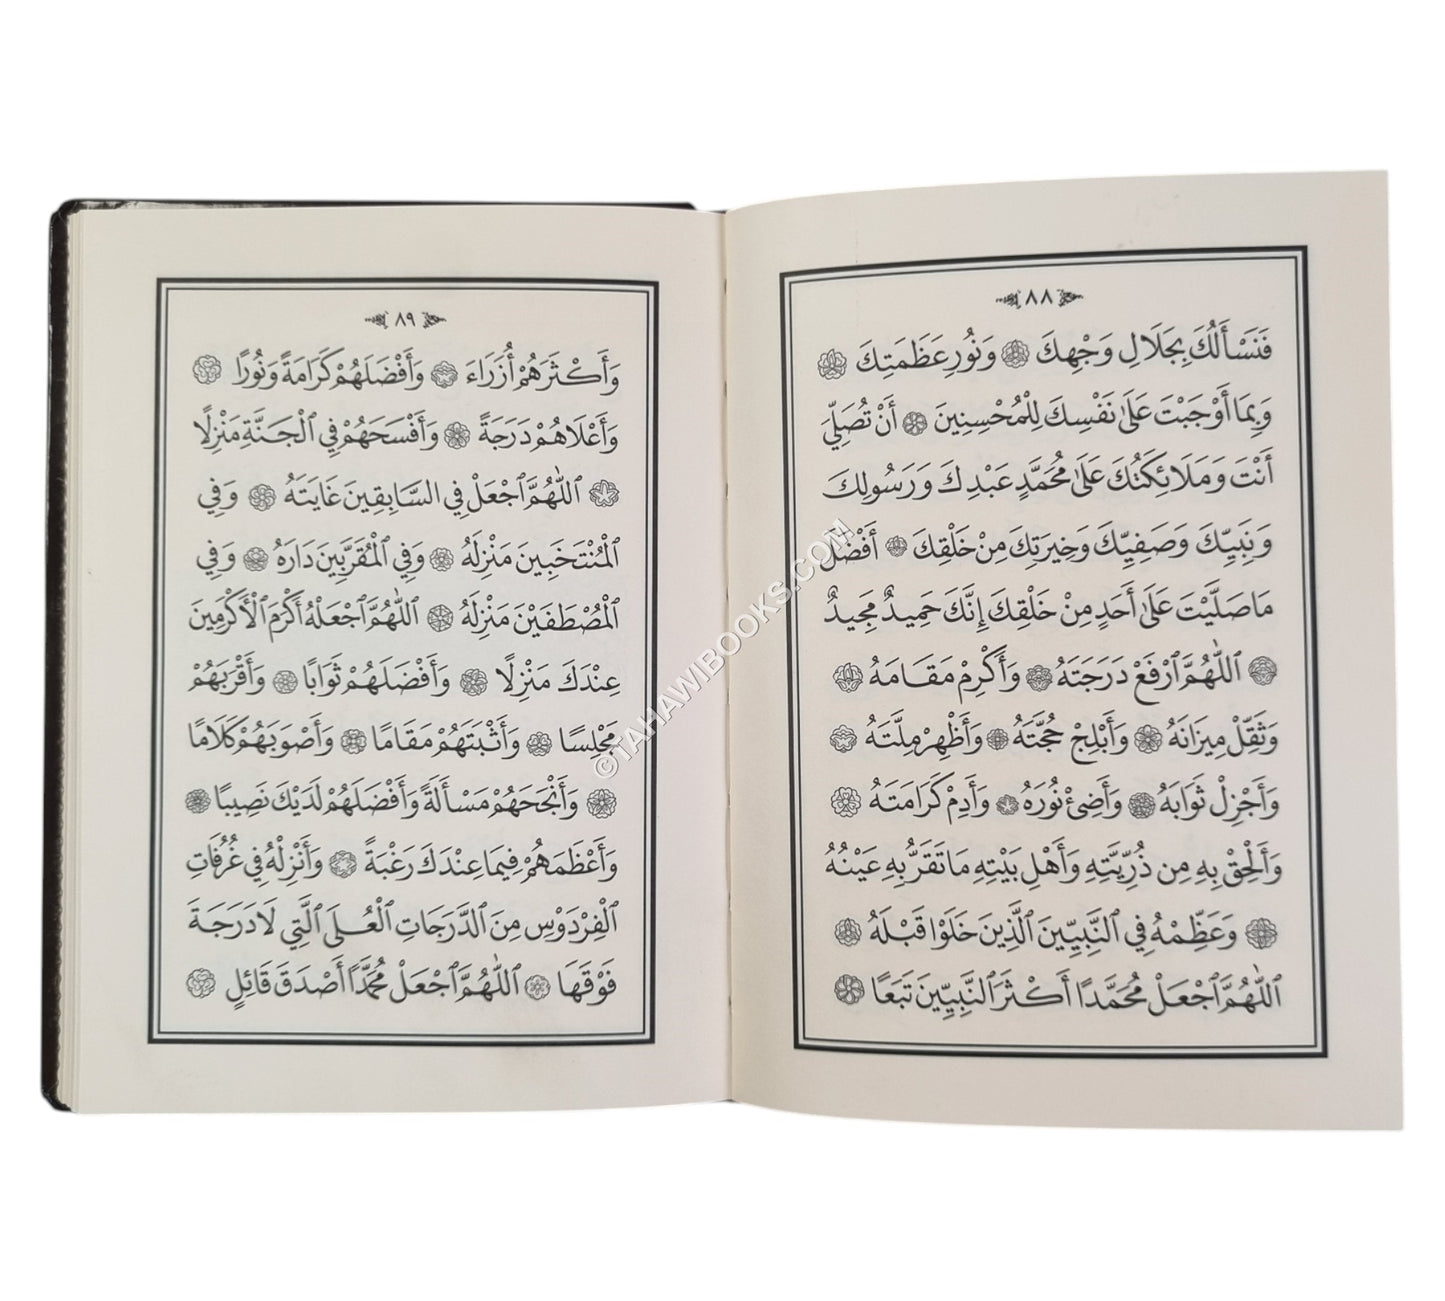 ٨٨
فَنَسْأَلُكَ بِجَلَالِ وَجْهِكَ وَنُورِ عَظَمَتِكَ
وَبِمَا أَوْجَبْتَ عَلَىٰ نَفْسِكَ لِلْمُحْسِنِينَ أَنْ تُصَلِّيَ
أَنْتَ وَمَلَائِكَتُكَ عَلَىٰ مُحَمَّدٍ عَبْدِكَ وَرَسُولِكَ
وَنَبِيِّكَ وَصَفِيِّكَ وَخِيرَتِكَ مِنْ خَلْقِكَ أَفْضَلَ
مَا صَلَّيْتَ عَلَىٰ أَحَدٍ مِنْ خَلْقِكَ إِنَّكَ حَمِيدٌ مَجِيدٌ
ٱللَّهُمَّ ٱرْفَعْ دَرَجَتَهُ وَأَكْرِمْ مَقَامَهُ
وَثَقِّلْ مِيزَانَهُ وَأَبْلِجْ حُجَّتَهُ وَأَظْهِرْ مِلَّتَهُ
وَأَجْزِلْ ثَوَابَهُ وَأَضِئْ نُورَهُ وَأَدِمْ كَرَامَتَهُ
وَأَلْحِقْ بِهِ مِن ذُرِّيَّتِهِ وَأَهْلِ بَيْتِهِ مَا تَقَرُّ بِهِ عَيْنُهُ
وَعَظِّمْهُ فِي ٱلنَّبِيِّينَ ٱلَّذِينَ خَلَوْا قَبْلَهُ
ٱللَّهُمَّ ٱجْعَلْ مُحَمَّدًا أَكْثَرَ ٱلنَّبِيِّينَ تَبَعًا
٨٩
وَأَكْثَرَهُمْ أُزَرَاءَ وَأَفْضَلَهُمْ كَرَامَةً وَنُورًا
وَأَعْلَاهُمْ دَرَجَةً وَأَفْسَحَهُمْ فِي ٱلْجَنَّةِ مَنْزِلًا
ٱللَّهُمَّ ٱجْعَلْ فِي السَّابِقِينَ غَايَتَهُ وَفِي
ٱلْمُنْتَخَبِينَ مَنْزِلَهُ وَفِي ٱلْمُقَرَّبِينَ دَارَهُ وَفِي
ٱلْمُصْطَفَيْنَ مَنْزِلَهُ ٱللَّهُمَّ ٱجْعَلْهُ أَكْرَمَ ٱلْأَكْرَمِينَ
عِنْدَكَ مَنْزِلًا وَأَفْضَلَهُمْ ثَوَابًا وَأَقْرَبَهُمْ
مَجْلِسًا وَأَثْبَتَهُمْ مَقَامًا وَأَصْوَبَهُمْ كَلَامًا
وَأَنْجَحَهُمْ مَسْأَلَةً وَأَفْضَلَهُمْ لَدَيْكَ نَصِيبًا
وَأَعْظَمَهُمْ فِيمَا عِنْدَكَ رَغْبَةً وَأَنْزِلْهُ فِي غُرُفَاتِ
ٱلْفِرْدَوْسِ مِنَ ٱلدَّرَجَاتِ ٱلْعُلَى ٱلَّتِي لَا دَرَجَةَ
فَوْقَهَا ٱللَّهُمَّ ٱجْعَلْ مُحَمَّدًا أَصْدَقَ قَائِلٍ
©TAHAWIBOOKS.COM